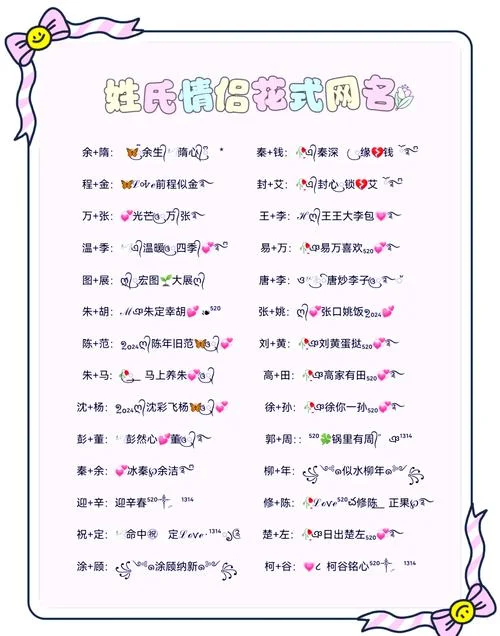 姓氏情侣花式网名
余+隋：🦋余生 隋心 *
秦+钱：🥀秦深 缘💔钱
程+金：🦋𝓛ℴ𝓿ℯ前程似金
封+艾：🥀封心 锁💔艾
万+张：💕光芒 万 张
王+李：ℋ 王王大李包💗
温+季：温暖 四季💕
易+万：🥀易万喜欢₅₂₀💕
图+展：宏图🌱大展
唐+李：唐炒李子
朱+胡：ℳ 朱定幸胡💕 ⁵²⁰
张+姚：💕张口姚饭2024💕
陈+范：2024 陈年旧范🦋 💕
刘+黄：🥀刘黄蛋挞₅₂₀💕
朱+马：🥀 马上养朱💕
高+田：🥀高家有田₅₂₀💕
沈+杨：2024 沈彩飞杨🦋 💕
徐+孙：🥀徐你一孙₅₂₀💕
彭+董：彭然心💕董
郭+周：：⁵²⁰🍀锅里有周 ¹³¹⁴
秦+余：💕冰秦 余洁
柳+年：似水柳年
迎+辛：迎辛春⁵²⁰ ¹³¹⁴
修+陈：🥀𝓛ℴ𝓿ℯ⁵²⁰ 修陈 正果
祝+定：命中㊗ 定𝓛ℴ𝓿ℯ·¹³¹⁴
楚+左：🥀日出楚左₅₂₀💕
涂+顾：涂顾纳新
柯+谷：💗 柯谷铭心 ¹³¹⁴